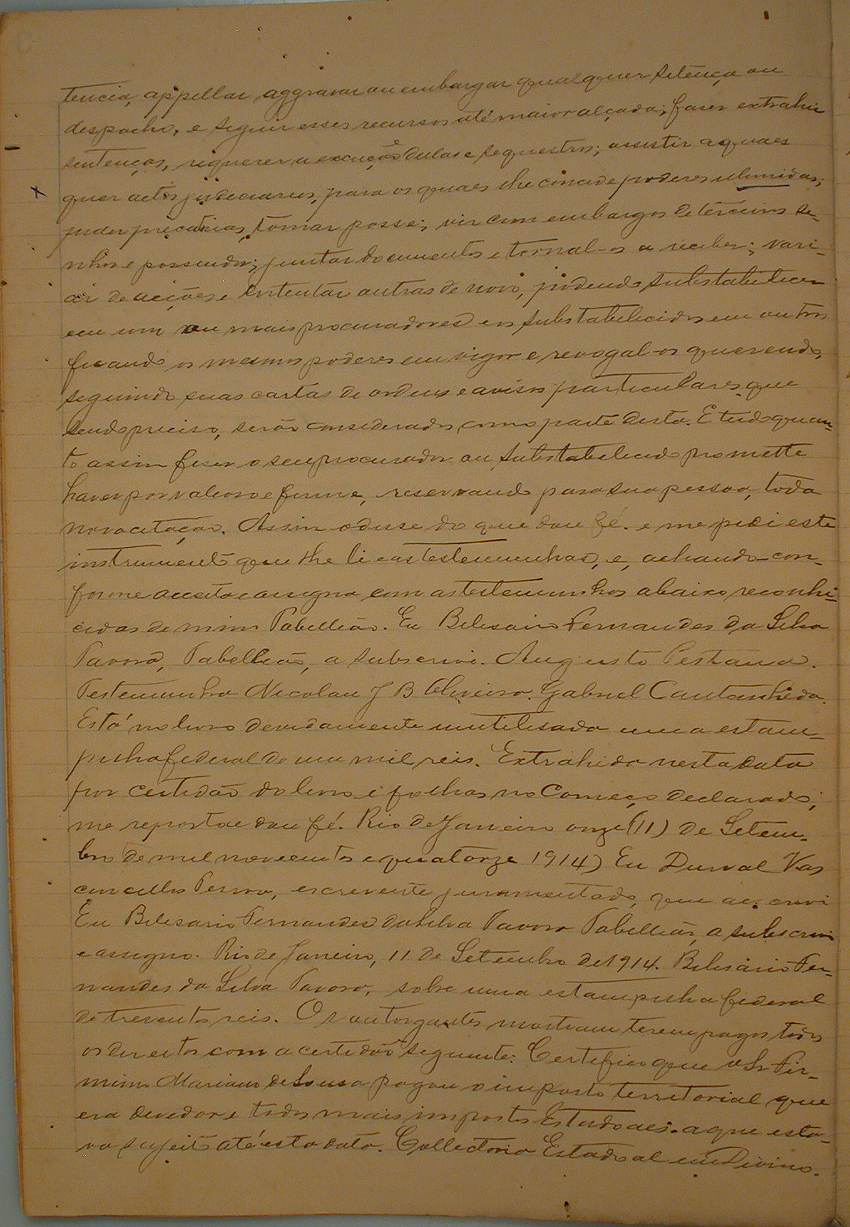 tencia, appellar, aggravar ou embargar qualquer setença ou
despacho, e seguir esses recursos até maior alçada; faser extrahir
sentenças, requerer a execução dellas e sequestros; assistir a quaes
quer actos judiciarios, para os quaes lhe concede poderes illimidas;
pedir precatorias, tomar posse; vir com embargos de terceiros se-
nhor e possuidor; juntar documentos e tornal-os a receber; vari-
ar de acções e intentar outras de novo, podendo substabelecer
em um ou mais procuradores e os substabelecidos em outros
ficando os mesmos poderes em vigor e revogal-os querendo,
seguindo suas cartas de ordens e avisos particulares que
sendo preciso, serão considerados como parte desta. E tudo quan-
to assim fiser o seu procurador ou substabelecido promette
haver por valioso e firme, reservando para sua pessoa, toda
nova citação. Assim o disse do que dou fé. e me pedi este
instrumento que lhe li e as testemunhas, e, achando con-
forme acceita e assigna com as testemunhas abaixo reconhe-
cidas de mim Tabellião. Eu Belisario Fernandes da Silva
Tavora, Tabellião, a subscrivi. Augusto Pestana.
Testemunha Nicolau J B Oliveira, Gabriel Cantanheda.
Está no livro devidamente inutilisada uma estam-
pilha federal de um mil reis. Extrahida nesta data
por certidão do livro e folhas no começo declarado;
me reporto e dou fé. Rio de Janeiro onze (11) de Setem-
bro de mil novecentos e quatorze 1914) Eu Durval Vas
concellos, escrevente juramentado, que a escrevi
Eu Belisario Fernandes da Silva Tavora Tabellião, a subscrevi
e assigno. Rio de Janeiro, 11 de Setembro de 1914. Belisario Fer-
nandes da Silva Tavora, sobre uma estampilha federal
de tresentos reis. Os outorgantes mostram terem pagos todos
os direitos com a certidão seguinte: Certifico que o Sr Fir-
mino Mariano de Sousa pagou o imposto territorial que
era devedor e todos mais impostos Estadoaes. a que esta-
va sujeito até esta data. Collectoria Estadoal em Divino.